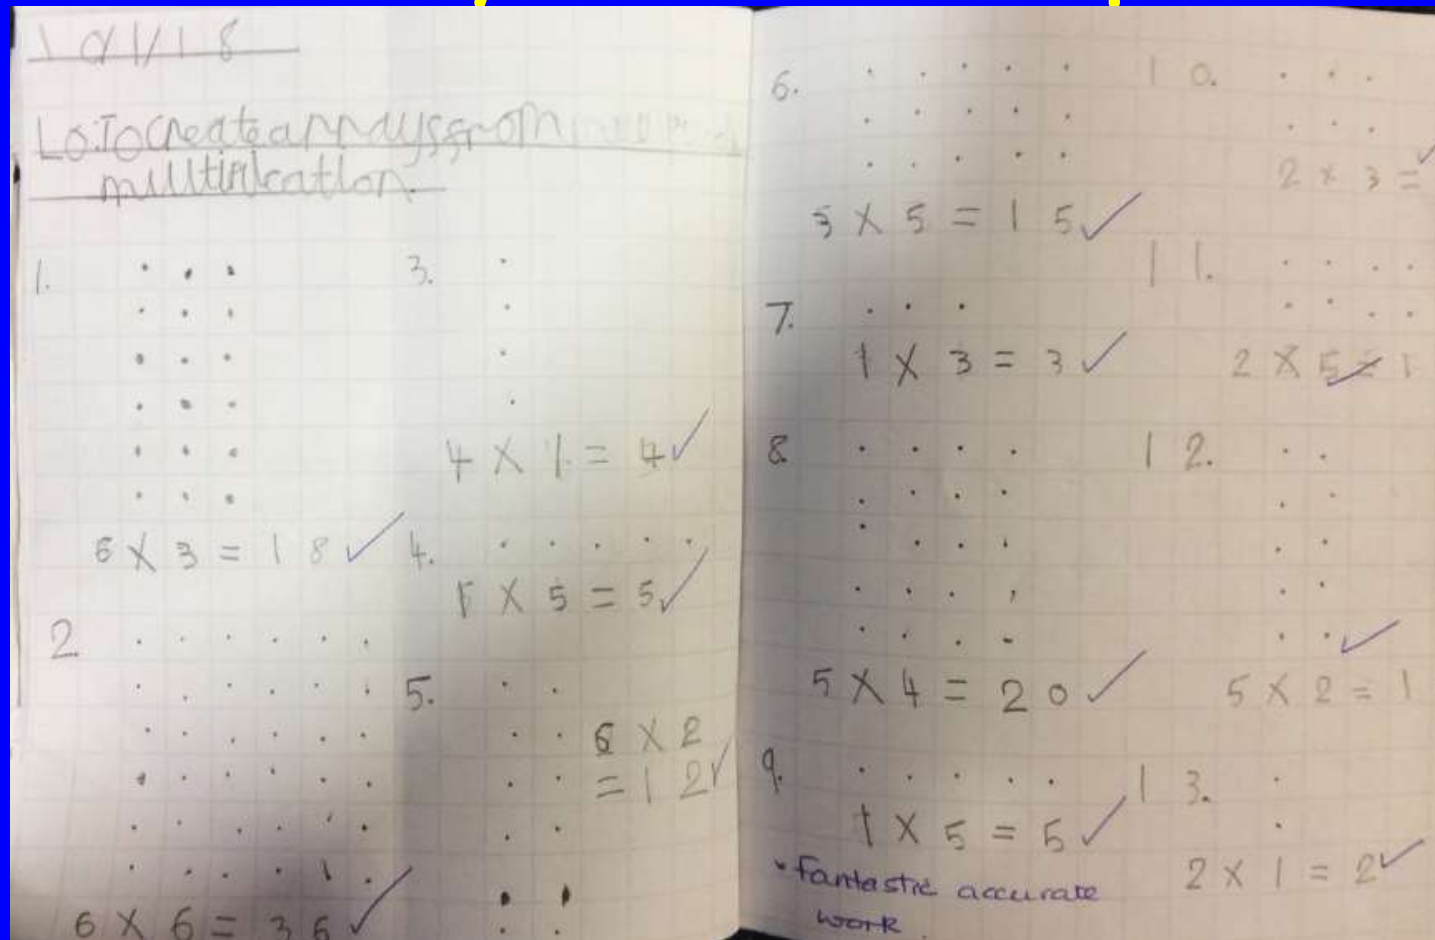 10/1/18
LO: To create arrays from
multiplication.
1.
6 X 3 = 18
2.
6 X 6 = 36
3.
4 X 1 = 4
4.
1 X 5 = 5
5.
6 X 2
= 12
6.
3 X 5 = 15
7.
1 X 3 = 3
8.
5 X 4 = 20
9.
1 X 5 = 5
• fantastic accurate
work.
10.
2 x 3 =
11.
2 X 5 = 1
12.
5 X 2 = 1
13.
2 X 1 = 2